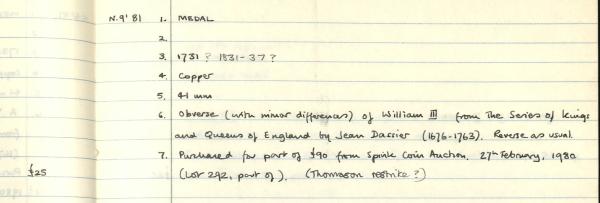 N.9' 81 1. MEDAL
2.
3. 1731 ? 1831-37 ?
4. Copper
5. 41 mm
6. Obverse (with minor differences) of William III from The Series of Kings
and Queens of England by Jean Dassier (1676-1763). Reverse as usual.
7. Purchased for part of £90 from Spink Coin Auction. 27th February, 1980
£25 (Lot 292, part of). (Thomason restrike?)